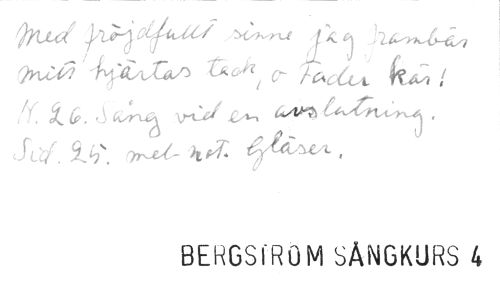 Med fröjdfullt sinne jag frambär
mitt hjärtas tack, o Fader kär!
N. 26. Sång vid en avslutning.
Sid. 25. mel- not. Gläser.
BERGSTRÖM SÅNGKURS 4